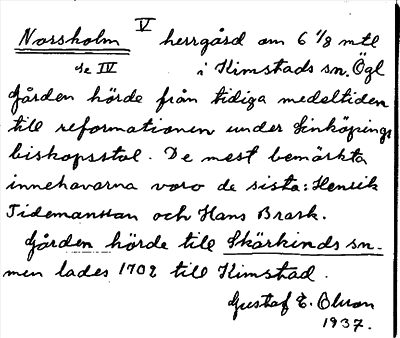 Norsholm V herrgård om 6 1/8 mtl
se IV i Kimstads sn. Ögl
Gården hörde från tidiga medeltiden
till reformationen under Linköpings
biskopsstol. De mest bemärkta
innehavarna voro de sista: Henrik
Tidemansson och Hans Brask.
Gården hörde till Skärkinds sn.
men lades 1702 till Kimstad.
Gustaf E. Olson
1937.